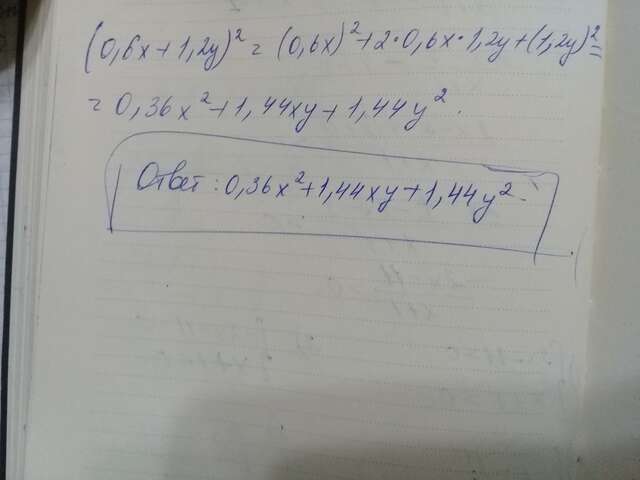 (0,6x+1,2y)² = (0,6x)²+2·0,6x·1,2y+(1,2y)²=
= 0,36x²+1,44xy+1,44y².
Ответ: 0,36x²+1,44xy+1,44y².